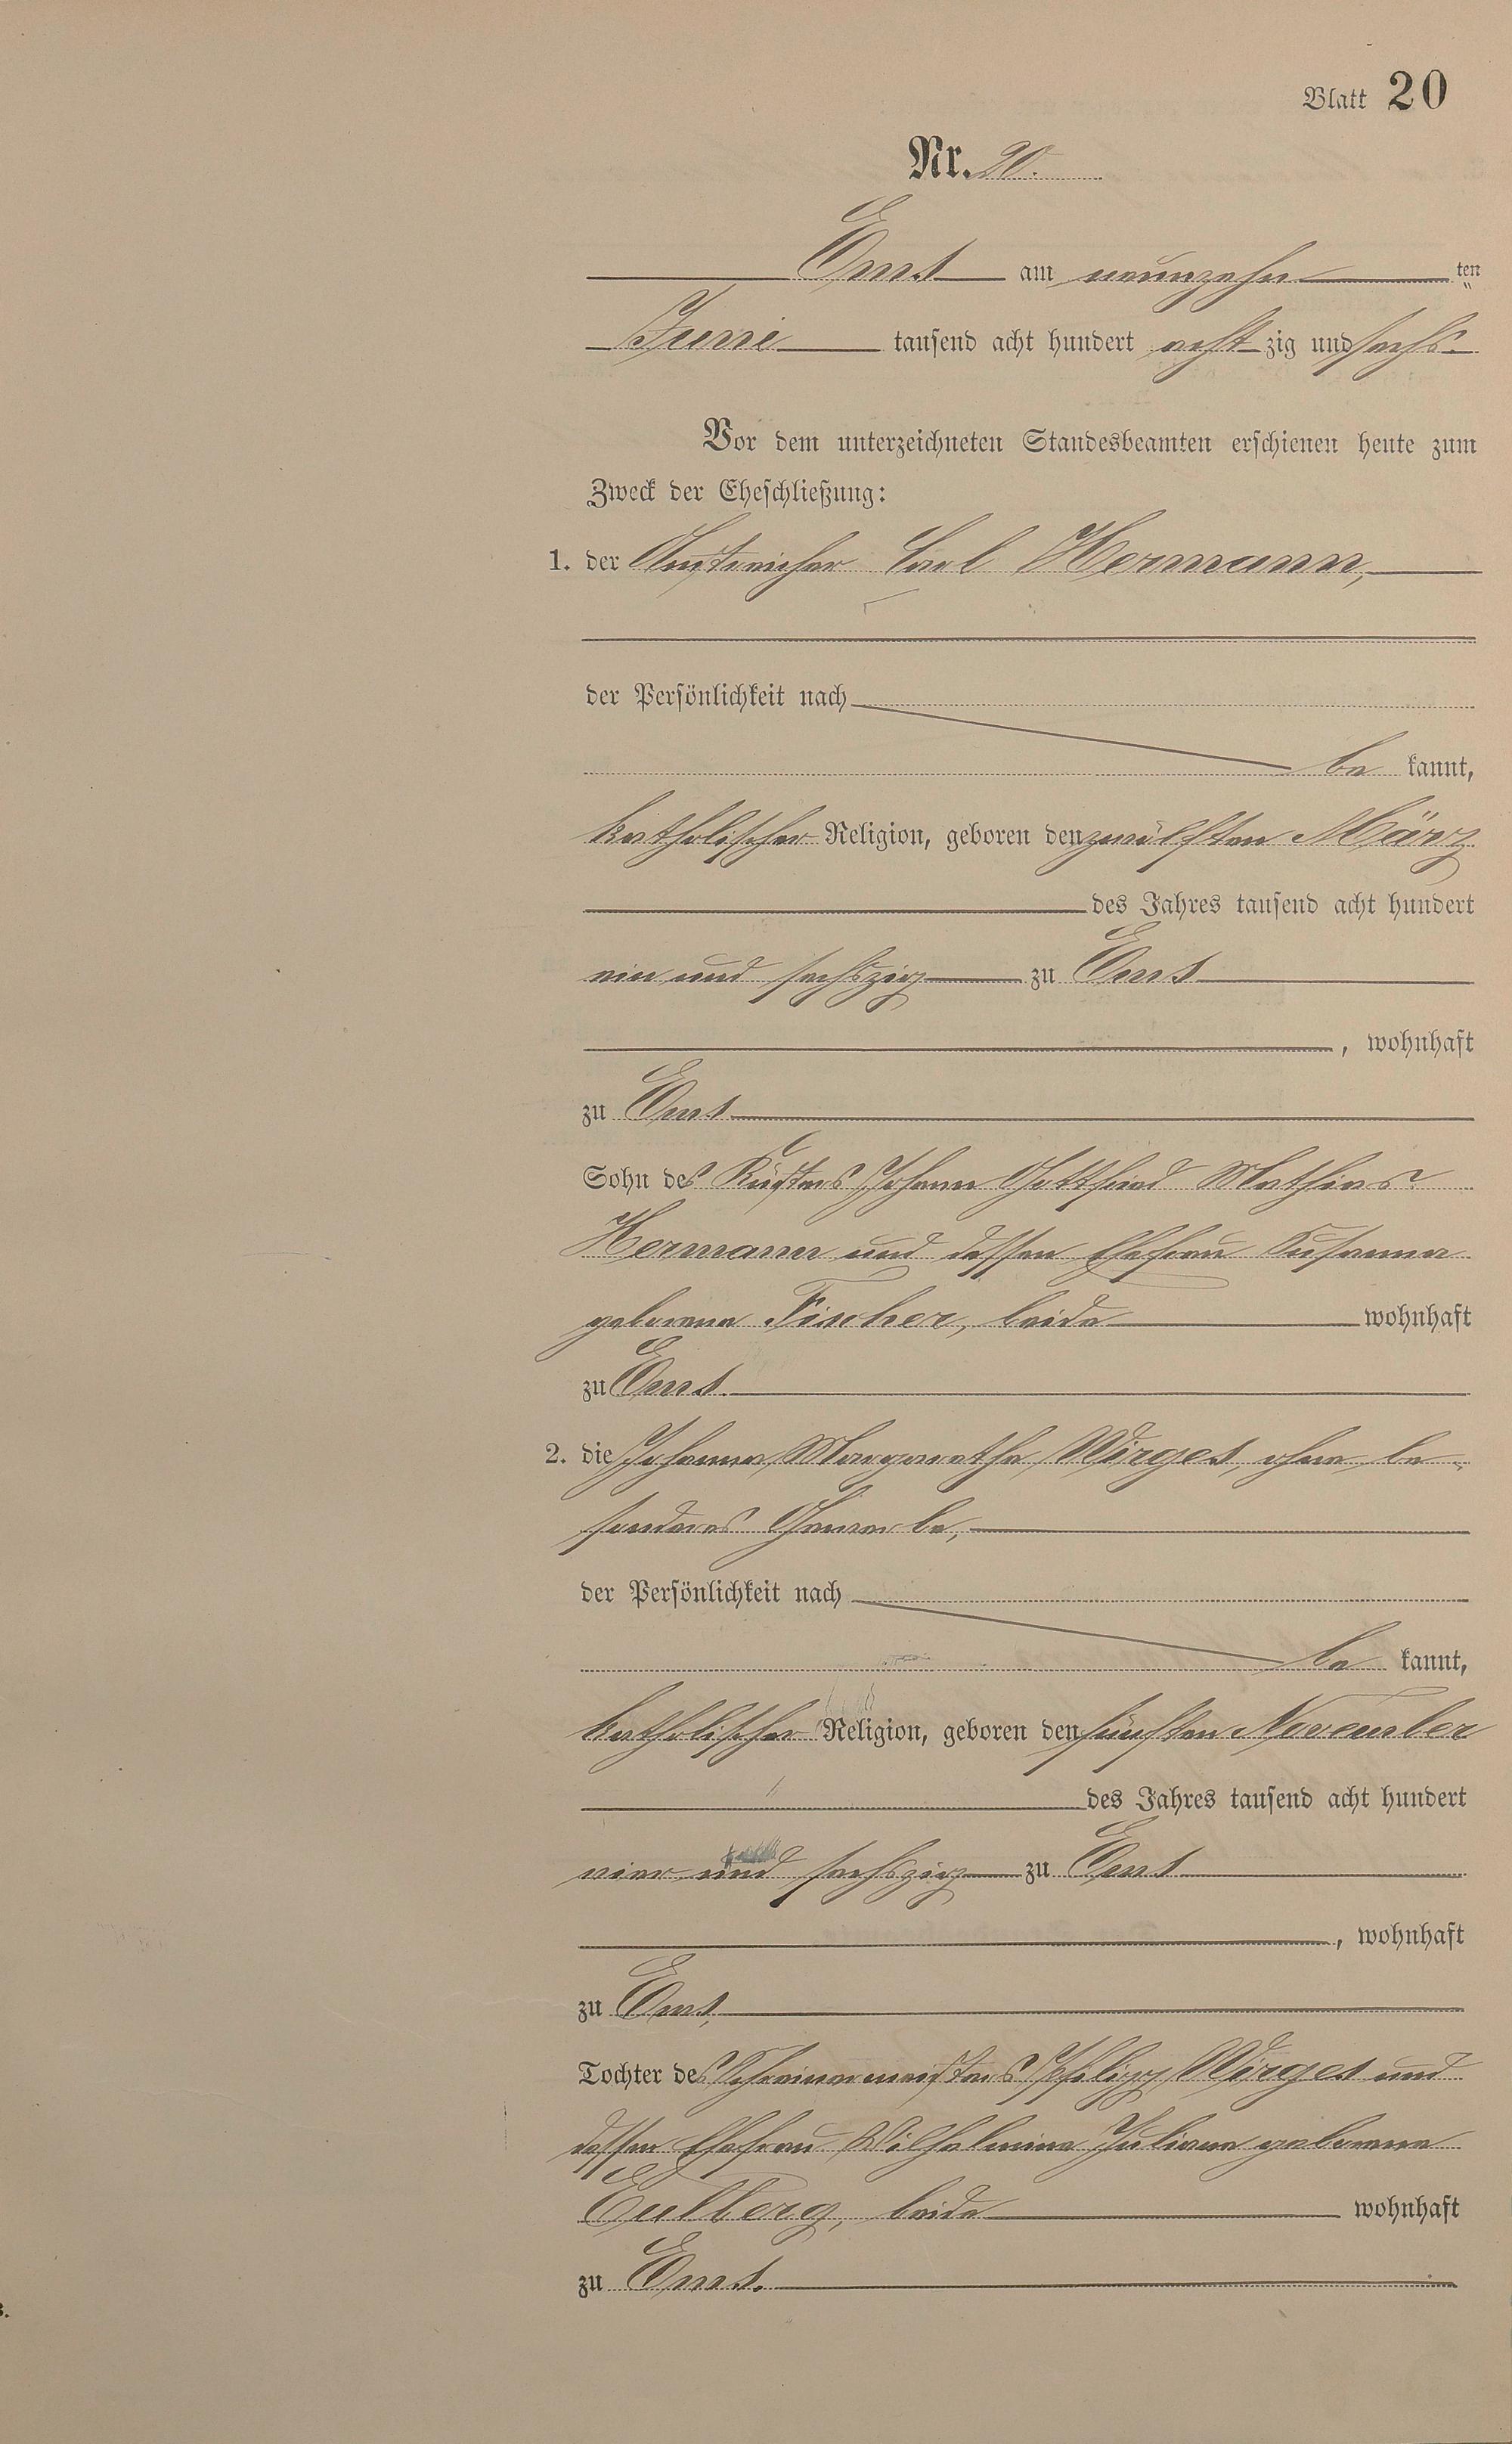 Blatt 20
Nr. 20.
Ems am neunzehn ten
Juni tausend acht hundert acht zig und sechs.
Vor dem unterzeichneten Standesbeamten erschienen heute zum
Zweck der Eheschließung:
1. der Anstreicher Carl Hermann,
der Persönlichkeit nach
be kannt,
katholischer Religion, geboren den zwölften März
des Jahres tausend acht hundert
ein und sechszig zu Ems
, wohnhaft
zu Ems
Sohn des Küsters Johann Gottfried Mathias
Hermann und dessen Ehefrau Susanna
geborene Fischer, beide wohnhaft
zu Ems.
2. die Johanna Margarethe Wirges, ohne be-
sonderes Gewerbe,
der Persönlichkeit nach
be kannt,
katholischer Religion, geboren den fünften November
des Jahres tausend acht hundert
vier und sechszig zu Ems
, wohnhaft
zu Ems,
Tochter des Schreinermeisters Philipp Wirges und
dessen Ehefrau Wilhelmine Juliane geborene
Eulberg, beide wohnhaft
zu Ems.